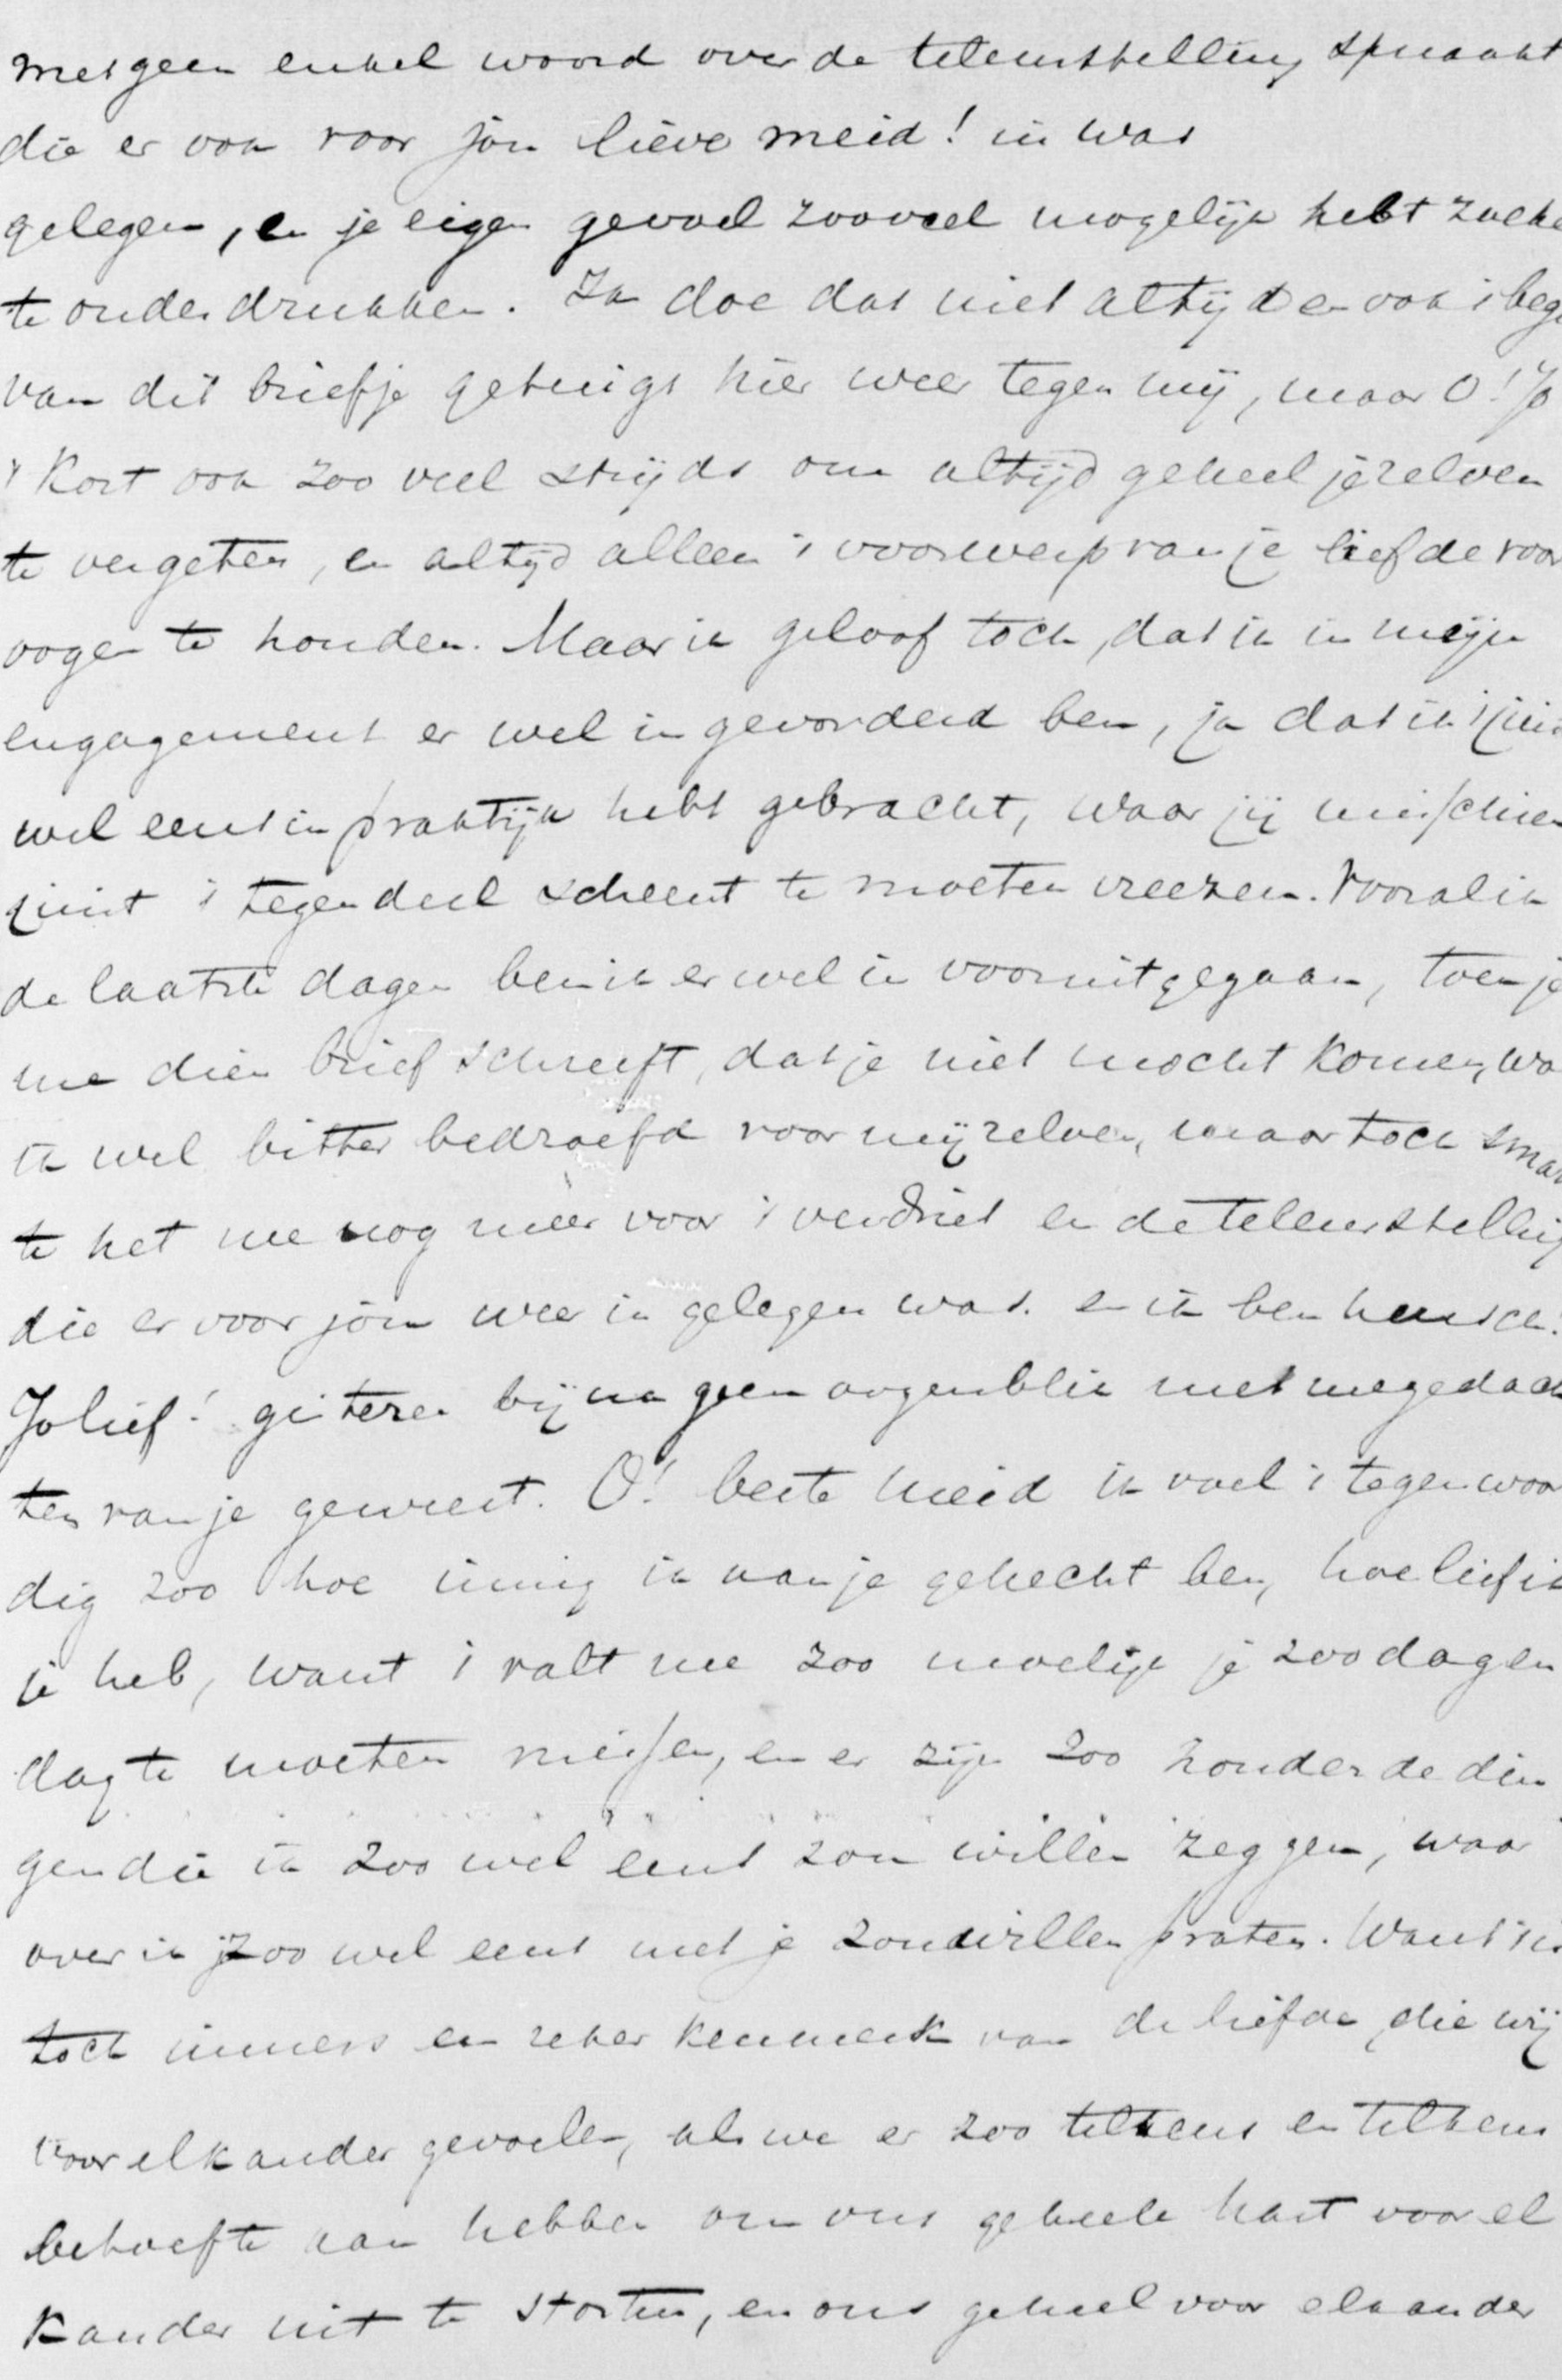 met geen enkel woord over de teleurstelling spraakt
die er ook voor jou lieve meid! in was
gelegen, en je eigen gevoel zooveel mogelijk hebt zoeke
te onderdrukken. Ik doe dat niet altijd en ook 't beg
van dit briefje getuigt hier weer tegen mij, maar O! Jo
't Kost ook zoo veel strijds om altijd geheel jezelven
te vergeten, en altijd alleen 't voorwerp van je liefde voor
oogen te houden. Maar ik geloof toch, dat ik in mijn
engagement er wel in gevorderd ben, ja dat ik 't juis
wel eens in praktijk hebt gebracht, waar jij misschien
juist 't tegendeel scheent te moeten vreezen. Vooral in
de laatste dagen ben ik er wel in vooruitgegaan, toen je
me dien brief schreeft, dat je niet mocht komen, wa
ik wel bitter bedroefd voor mijzelven, maar toch smar
te het me nog meer voor 't verdriet en de teleurstelling
die er voor jou weer in gelegen was. en ik ben heusch!
Jo lief! gisteren bijna geen oogenblik met me gedach
ten van je geweest. O! beste meid ik voel 't tegenwoor
dig zoo hoe innig ik aan je gehecht ben, hoe lief ik
je heb, want 't valt me zoo moeilijk je zoo dag en
dag te moeten missen, en er zijn zoo honderde din
gen die ik zoo wel eens zou willen zeggen, waar
over ik zoo wel eens met je zou willen praten. Want 't is
toch immers een zeker kenmerk van de liefde, die wij
voor elkander gevoelen, als we er zoo telkens en telkens
behoefte aan hebben om ons geheele hart voor el
kander uit te storten, en ons geheel voor elkander